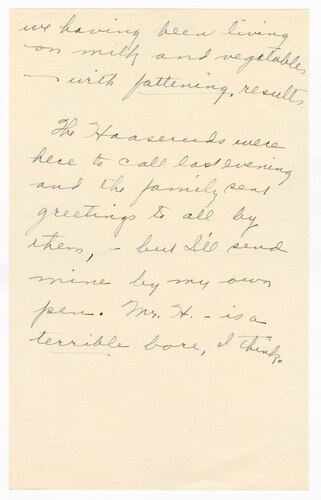 we having been living
on milk and vegetables
- with fattening results
The Haaseruds were
here to call last evening
and the family sent
greetings to all by
them, - but I'll send
mine by my own
pen. Mr. H. - is a
terrible bore, I think.